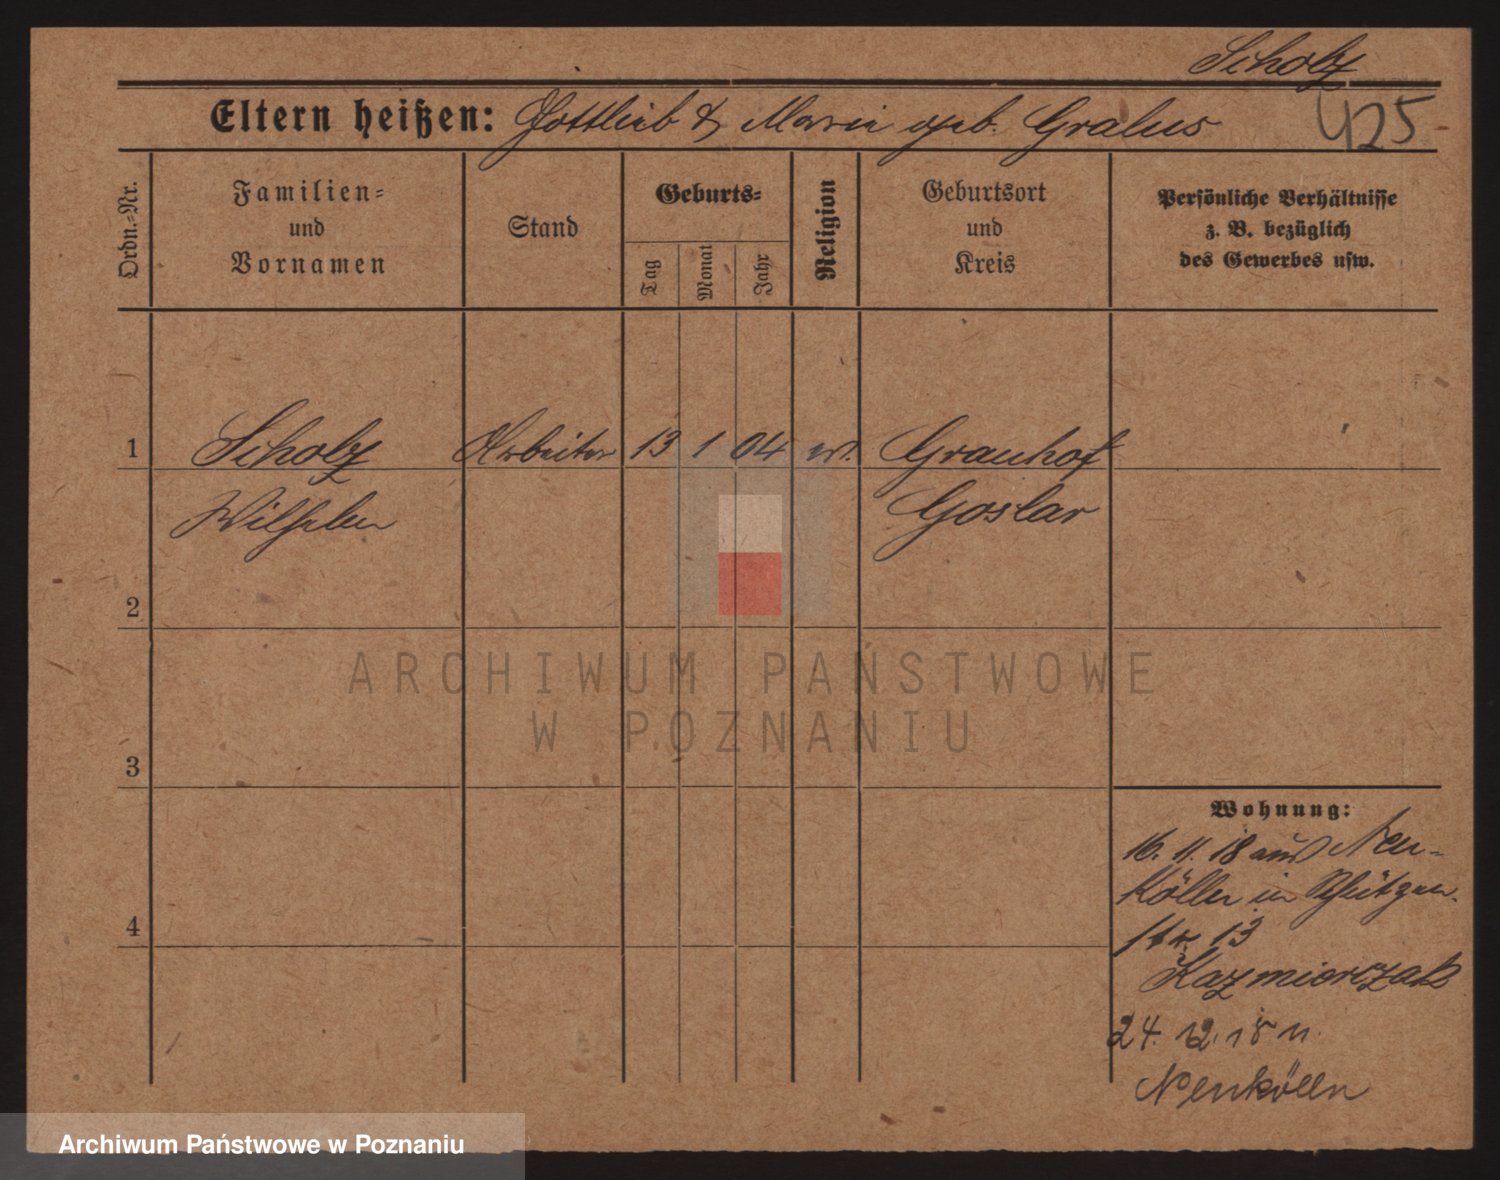 Scholz
425
Eltern heißen: Gottlieb & Marie geb. Gralus
Ordn.=Nr.
Familien=
und
Vornamen
Stand
Geburts=
Tag
Monat
Jahr
Religion
Geburtsort
und
Kreis
Persönliche Verhältnisse
z. B. bezüglich
des Gewerbes usw.
1 Scholz Arbeiter 13 1 04 ev. Grauhof
Wilhelm Goslar
2
3
4
Wohnung:
16. 11. 18 aus Neu-
kölln in Schützen-
str 13
Kazmierczak
24. 12. 18 n.
Neukölln
ARCHIWUM PAŃSTWOWE
W POZNANIU
Archiwum Państwowe w Poznaniu